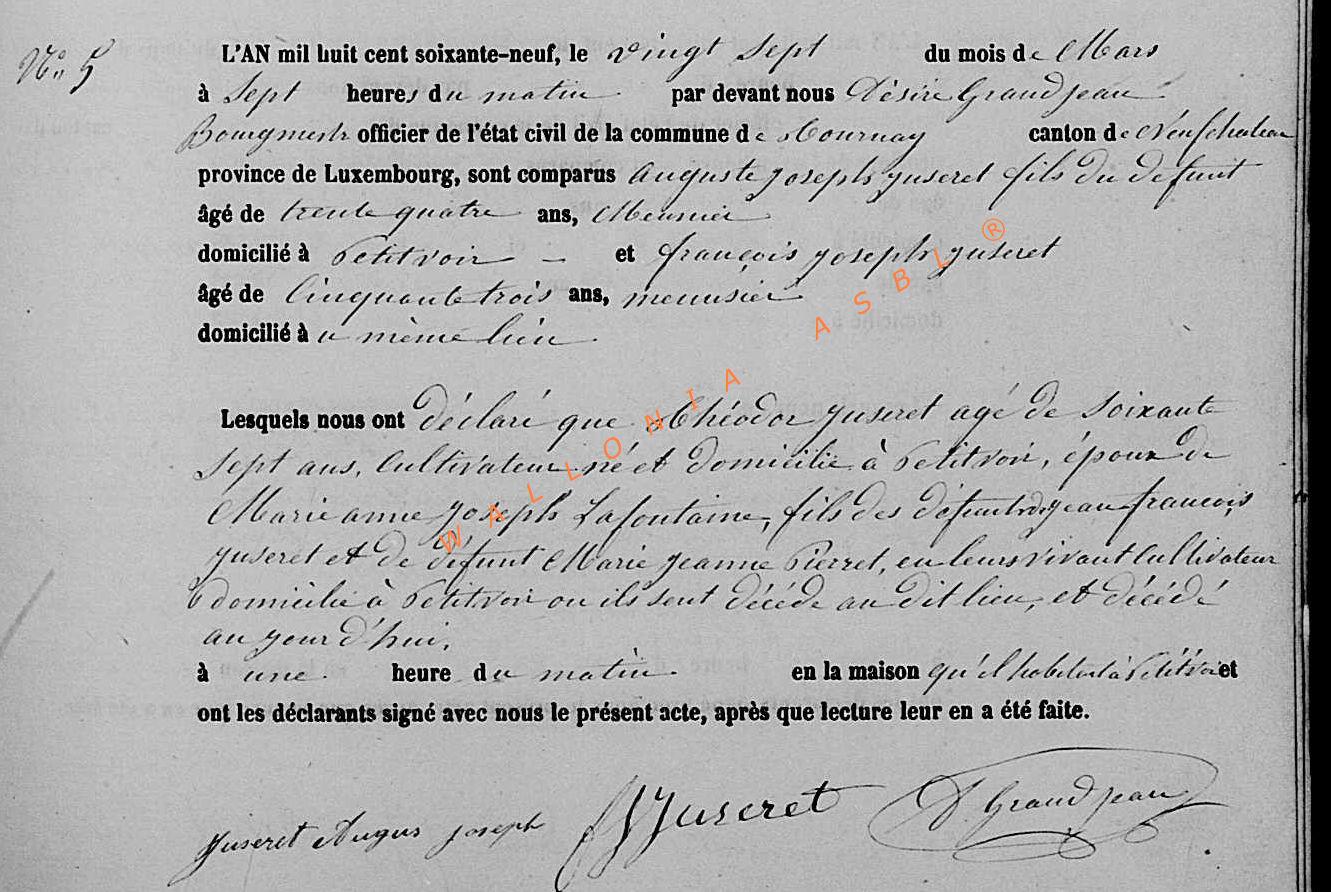 No 5
L'AN mil huit cent soixante-neuf, le vingt sept du mois de Mars
à Sept heures du matin par devant nous Désiré Grandjean
Bourgmestr officier de l'état civil de la commune de Tournay canton de Neufchateau
province de Luxembourg, sont comparus Auguste Joseph Juseret fils du défunt
âgé de trente quatre ans, Meunier
domicilié à Petitvoir — et françois Joseph Juseret
âgé de Cinquante trois ans, menuisier
domicilié à u même lieu
Lesquels nous ont déclaré que Théodor Juseret agé de soixante
sept ans, Cultivateur né et domicilié à Petitvoir, époux de
Marie anne Joseph Lafontaine, fils des défunts Jean françois
Juseret et de défunt Marie Jeanne Pierret, en leurs vivant Cultivateur
domicilié à Petitvoir ou ils sont décédé au dit lieu, et décédé
au jour d'hui,
à une heure du matin en la maison qu'il habitait à Petitvoir et
ont les déclarants signé avec nous le présent acte, après que lecture leur en a été faite.
Juseret Augus Joseph Juseret D. Grandjean
WALLONIA ASBL ®